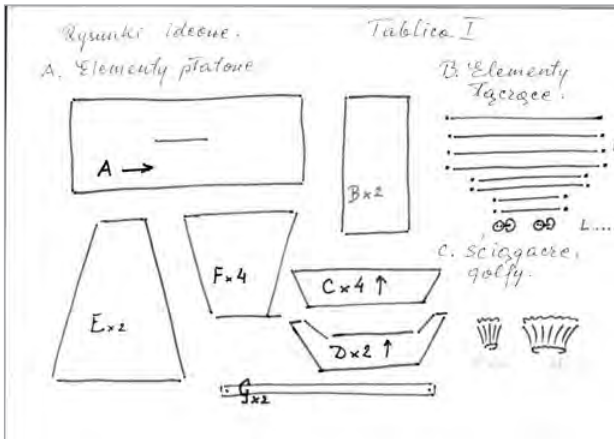 Rysunki ideowe. Tablica I
A. Elementy płatowe
B. Elementy
łączące.
A →
B×2
F×4
E×2
C×4 ↑
D×2 ↑
G×2
C. ściągacze,
golfy.
L....